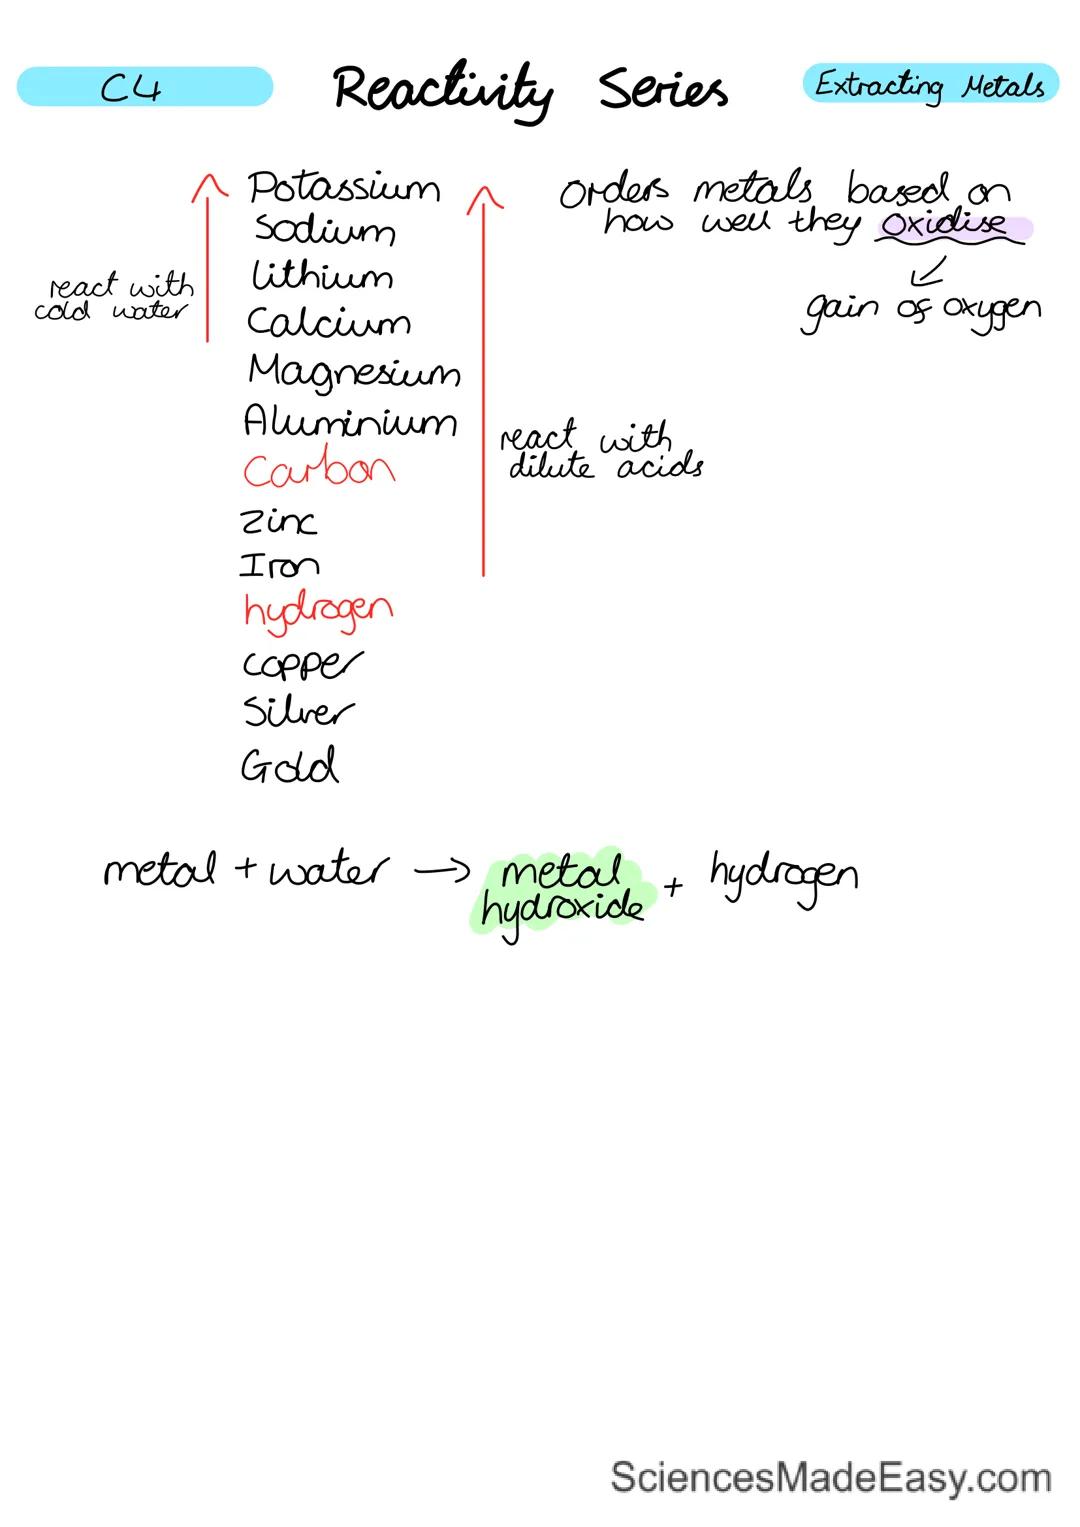 C4
Reactivity Series
Extracting Metals
Potassium
Sodium
lithium
Calcium
Magnesium
Aluminium
Carbon
Zinc
Iron
hydrogen
copper
Silver
Gold
react with
cold water
react with
dilute acids
orders metals based on
how well they oxidise
gain of oxygen
metal + water → metal hydroxide + hydrogen
SciencesMadeEasy.com